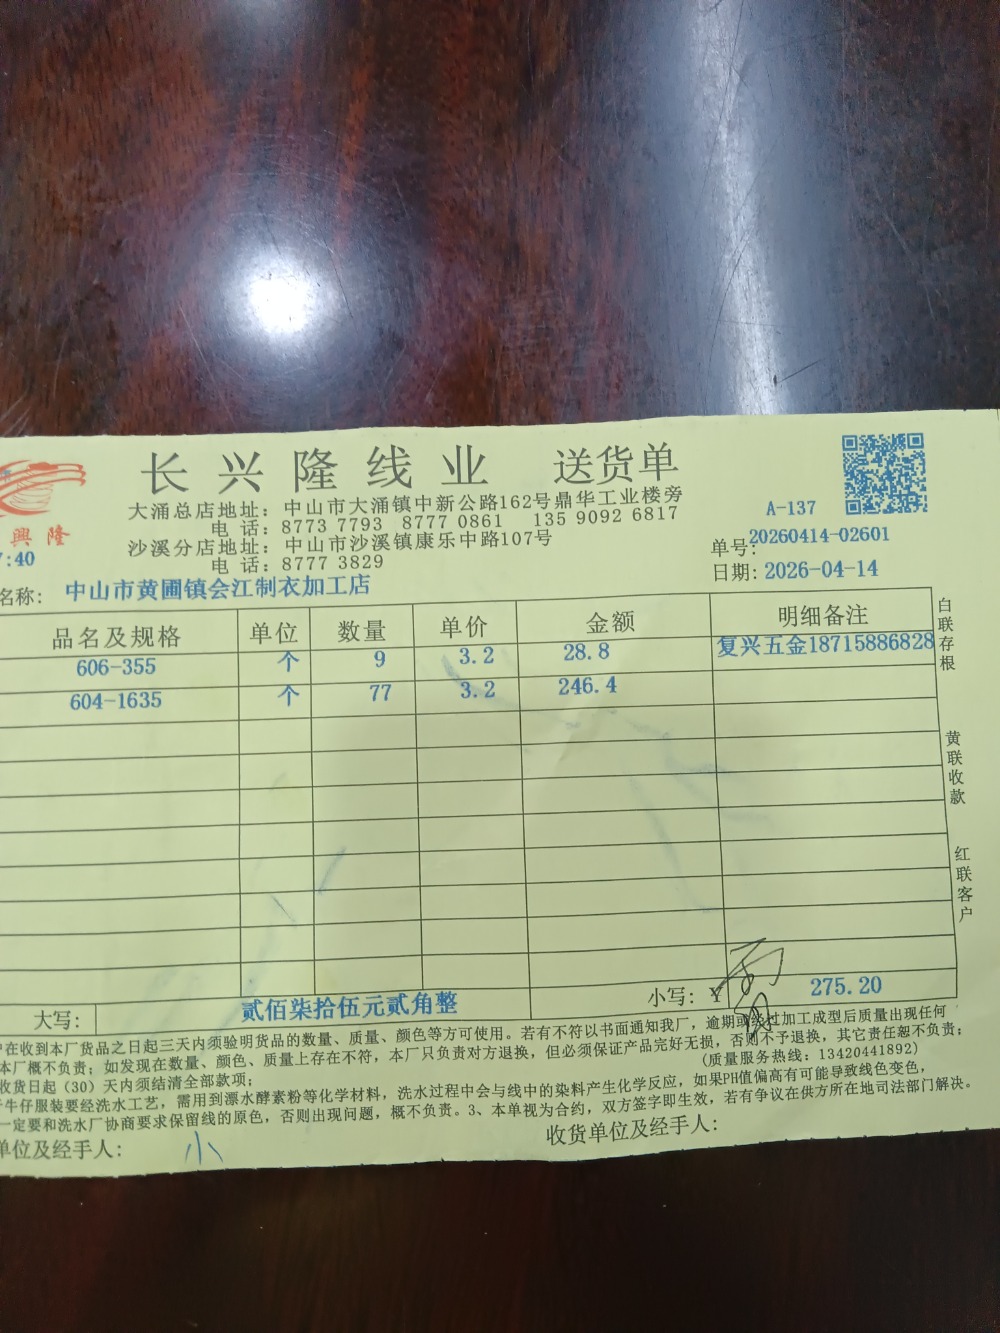 長興隆线业 送货单
大涌总店地址：中山市大涌镇中新公路162号鼎华工业楼旁
电 话：8773 7793 8777 0861 135 9092 6817
沙溪分店地址：中山市沙溪镇康乐中路107号
电 话：8777 3829
興隆
7:40
A-137
单号：20260414-02601
日期：2026-04-14
名称：中山市黄圃镇会江制衣加工店
品名及规格 单位 数量 单价 金额 明细备注
606-355 个 9 3.2 28.8 复兴五金18715886828
604-1635 个 77 3.2 246.4
白联存根
黄联收款
红联客户
大写：贰佰柒拾伍元贰角整 小写：¥ 275.20
户在收到本厂货品之日起三天内须验明货品的数量、质量、颜色等方可使用。若有不符以书面通知我厂，逾期或经过加工成型后质量出现任何
本厂概不负责；如发现在数量、颜色、质量上存在不符，本厂只负责对方退换，但必须保证产品完好无损，否则不予退换，其它责任恕不负责；
收货日起（30）天内须结清全部款项； (质量服务热线：13420441892)
牛仔服装要经洗水工艺，需用到漂水酵素粉等化学材料，洗水过程中会与线中的染料产生化学反应，如果PH值偏高有可能导致线色变色，
一定要和洗水厂协商要求保留线的原色，否则出现问题，概不负责。3、本单视为合约，双方签字即生效，若有争议在供方所在地司法部门解决。
单位及经手人： 小 收货单位及经手人：